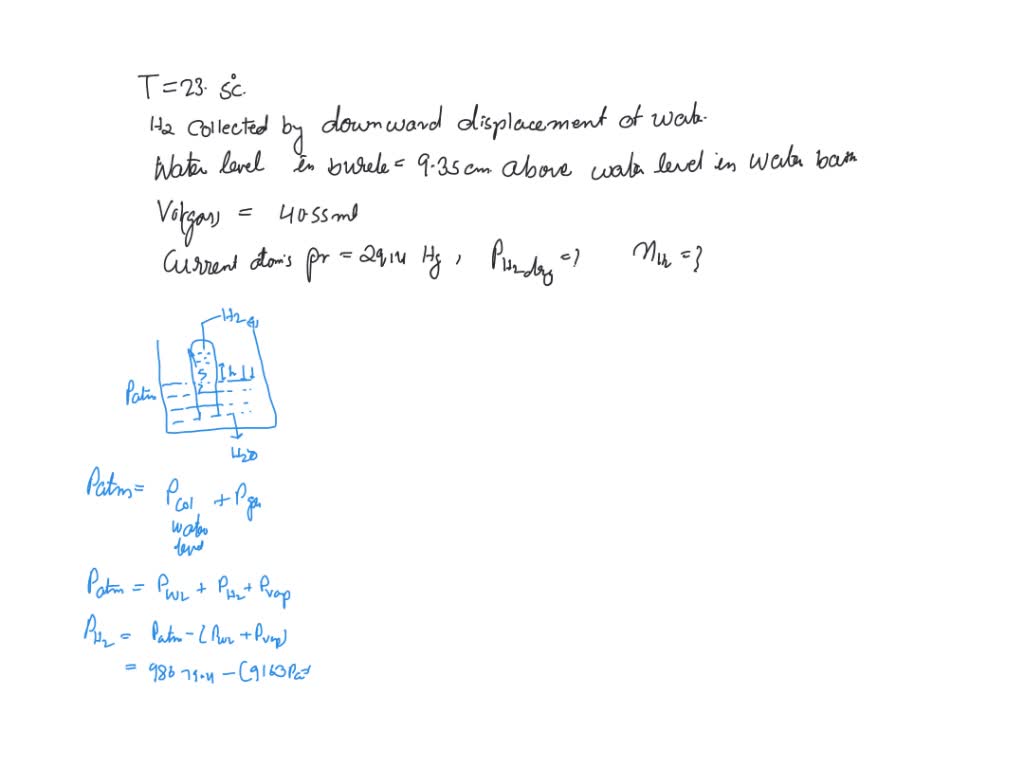 T = 23.5°C.
H2 collected by downward displacement of wate.
Water level in burete = 9.35cm above water level in water bath
Vol(gas) = 40.55ml
Current atoms pr = 29.14 Hg, PH2 dry = ? nH2 = ?
H2
h
Patm
H2O
Patm = Pcol + Pgas
water
level
Patm = PWL + PH2 + Pvap
PH2 = Patm - (PWL + Pvap)
= 98679.4 - (916.3Pa+